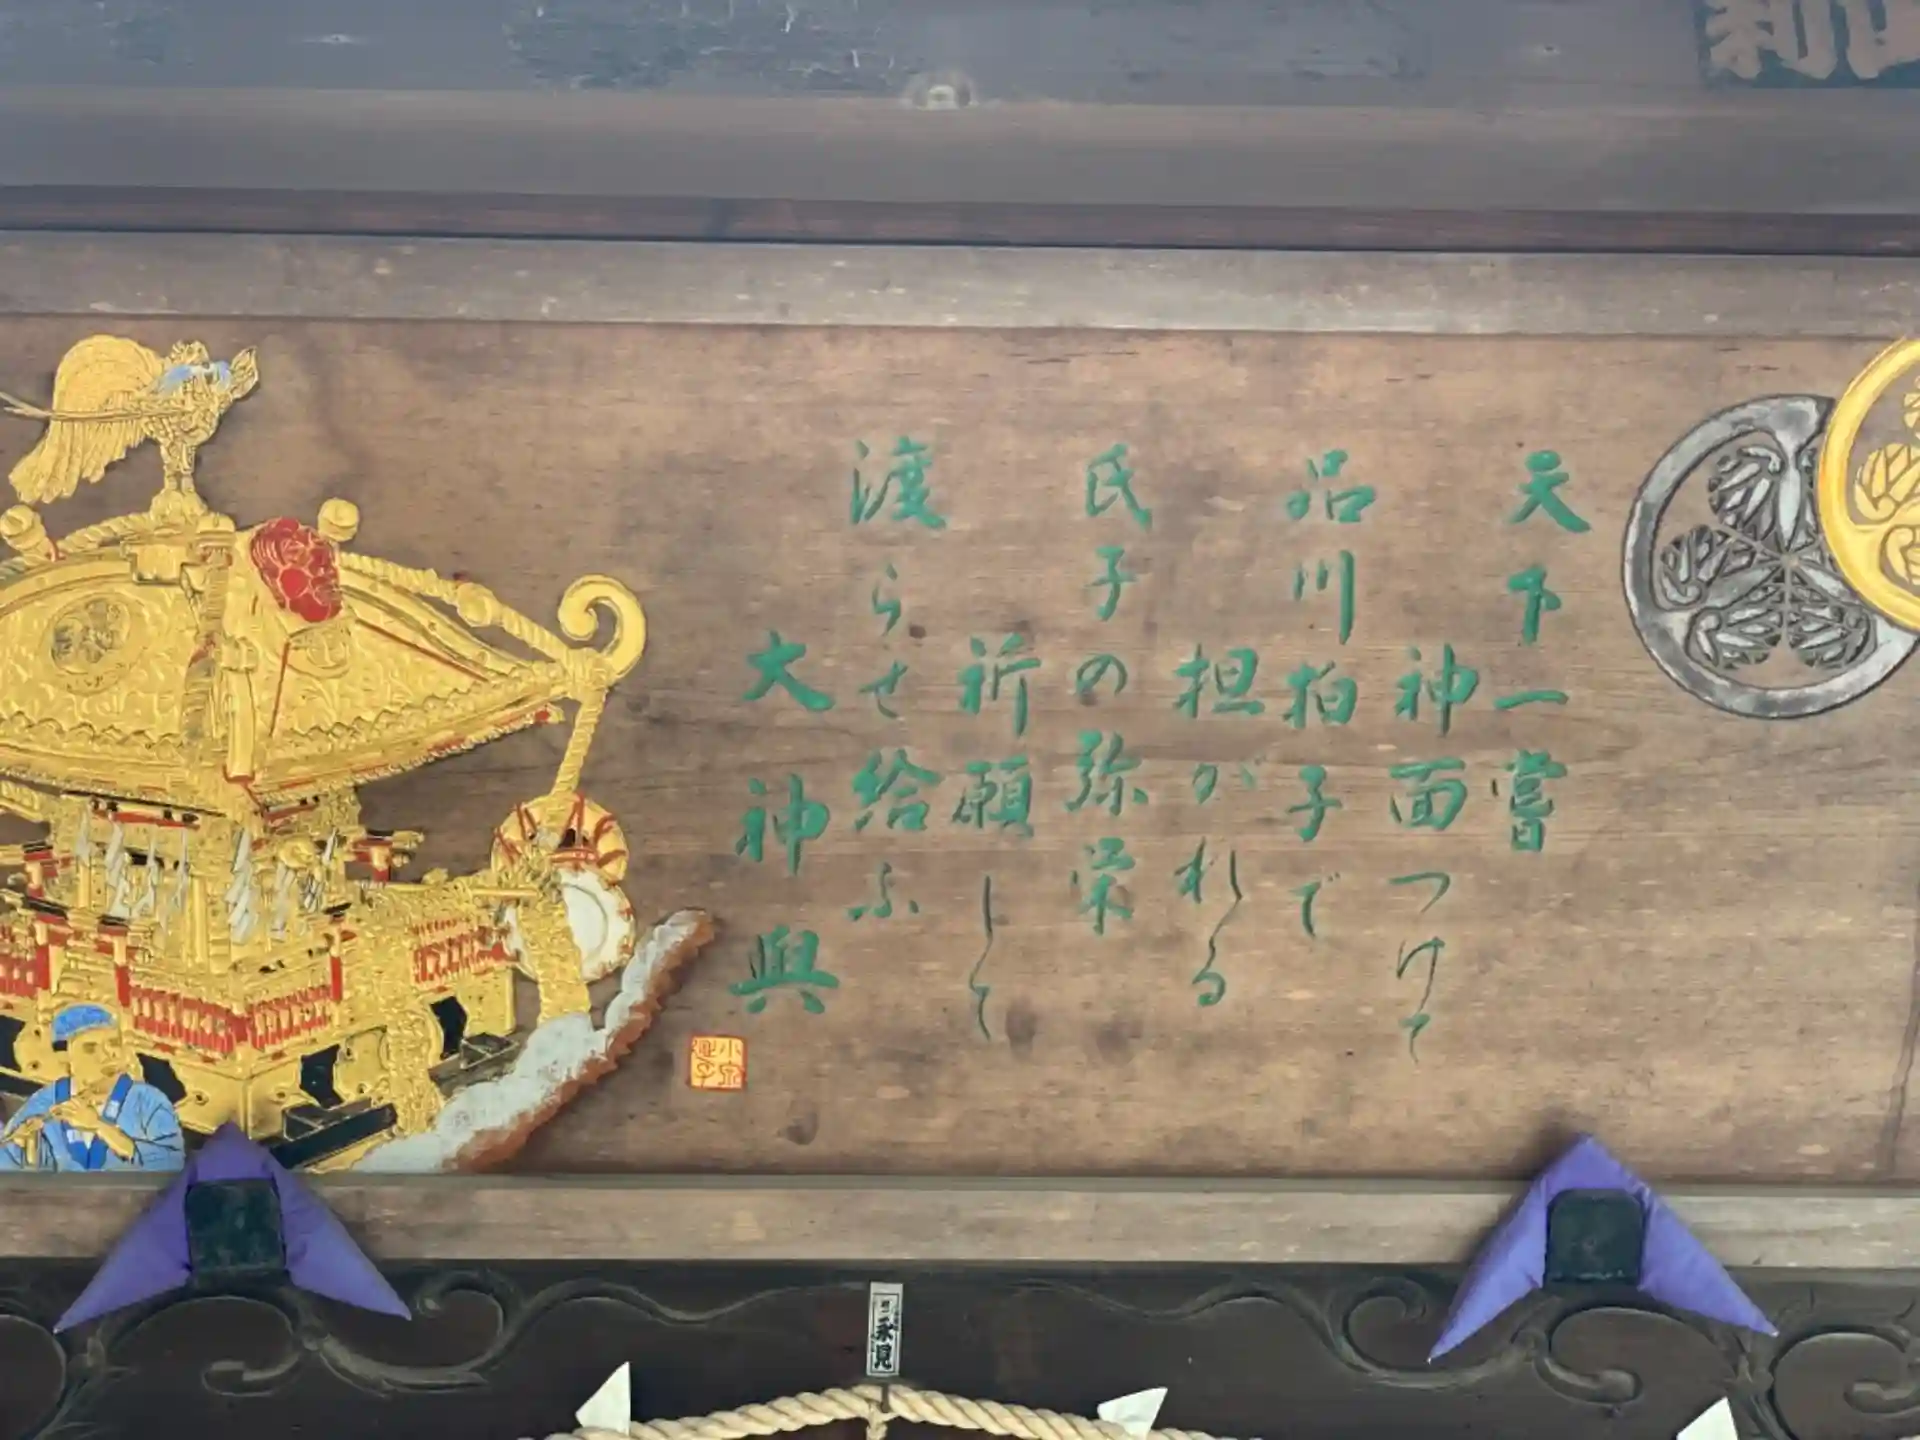 天下一嘗
神面つけて
品川拍子で
担がれる
氏子の弥栄
祈願して
渡らせ給ふ
大神輿
永見